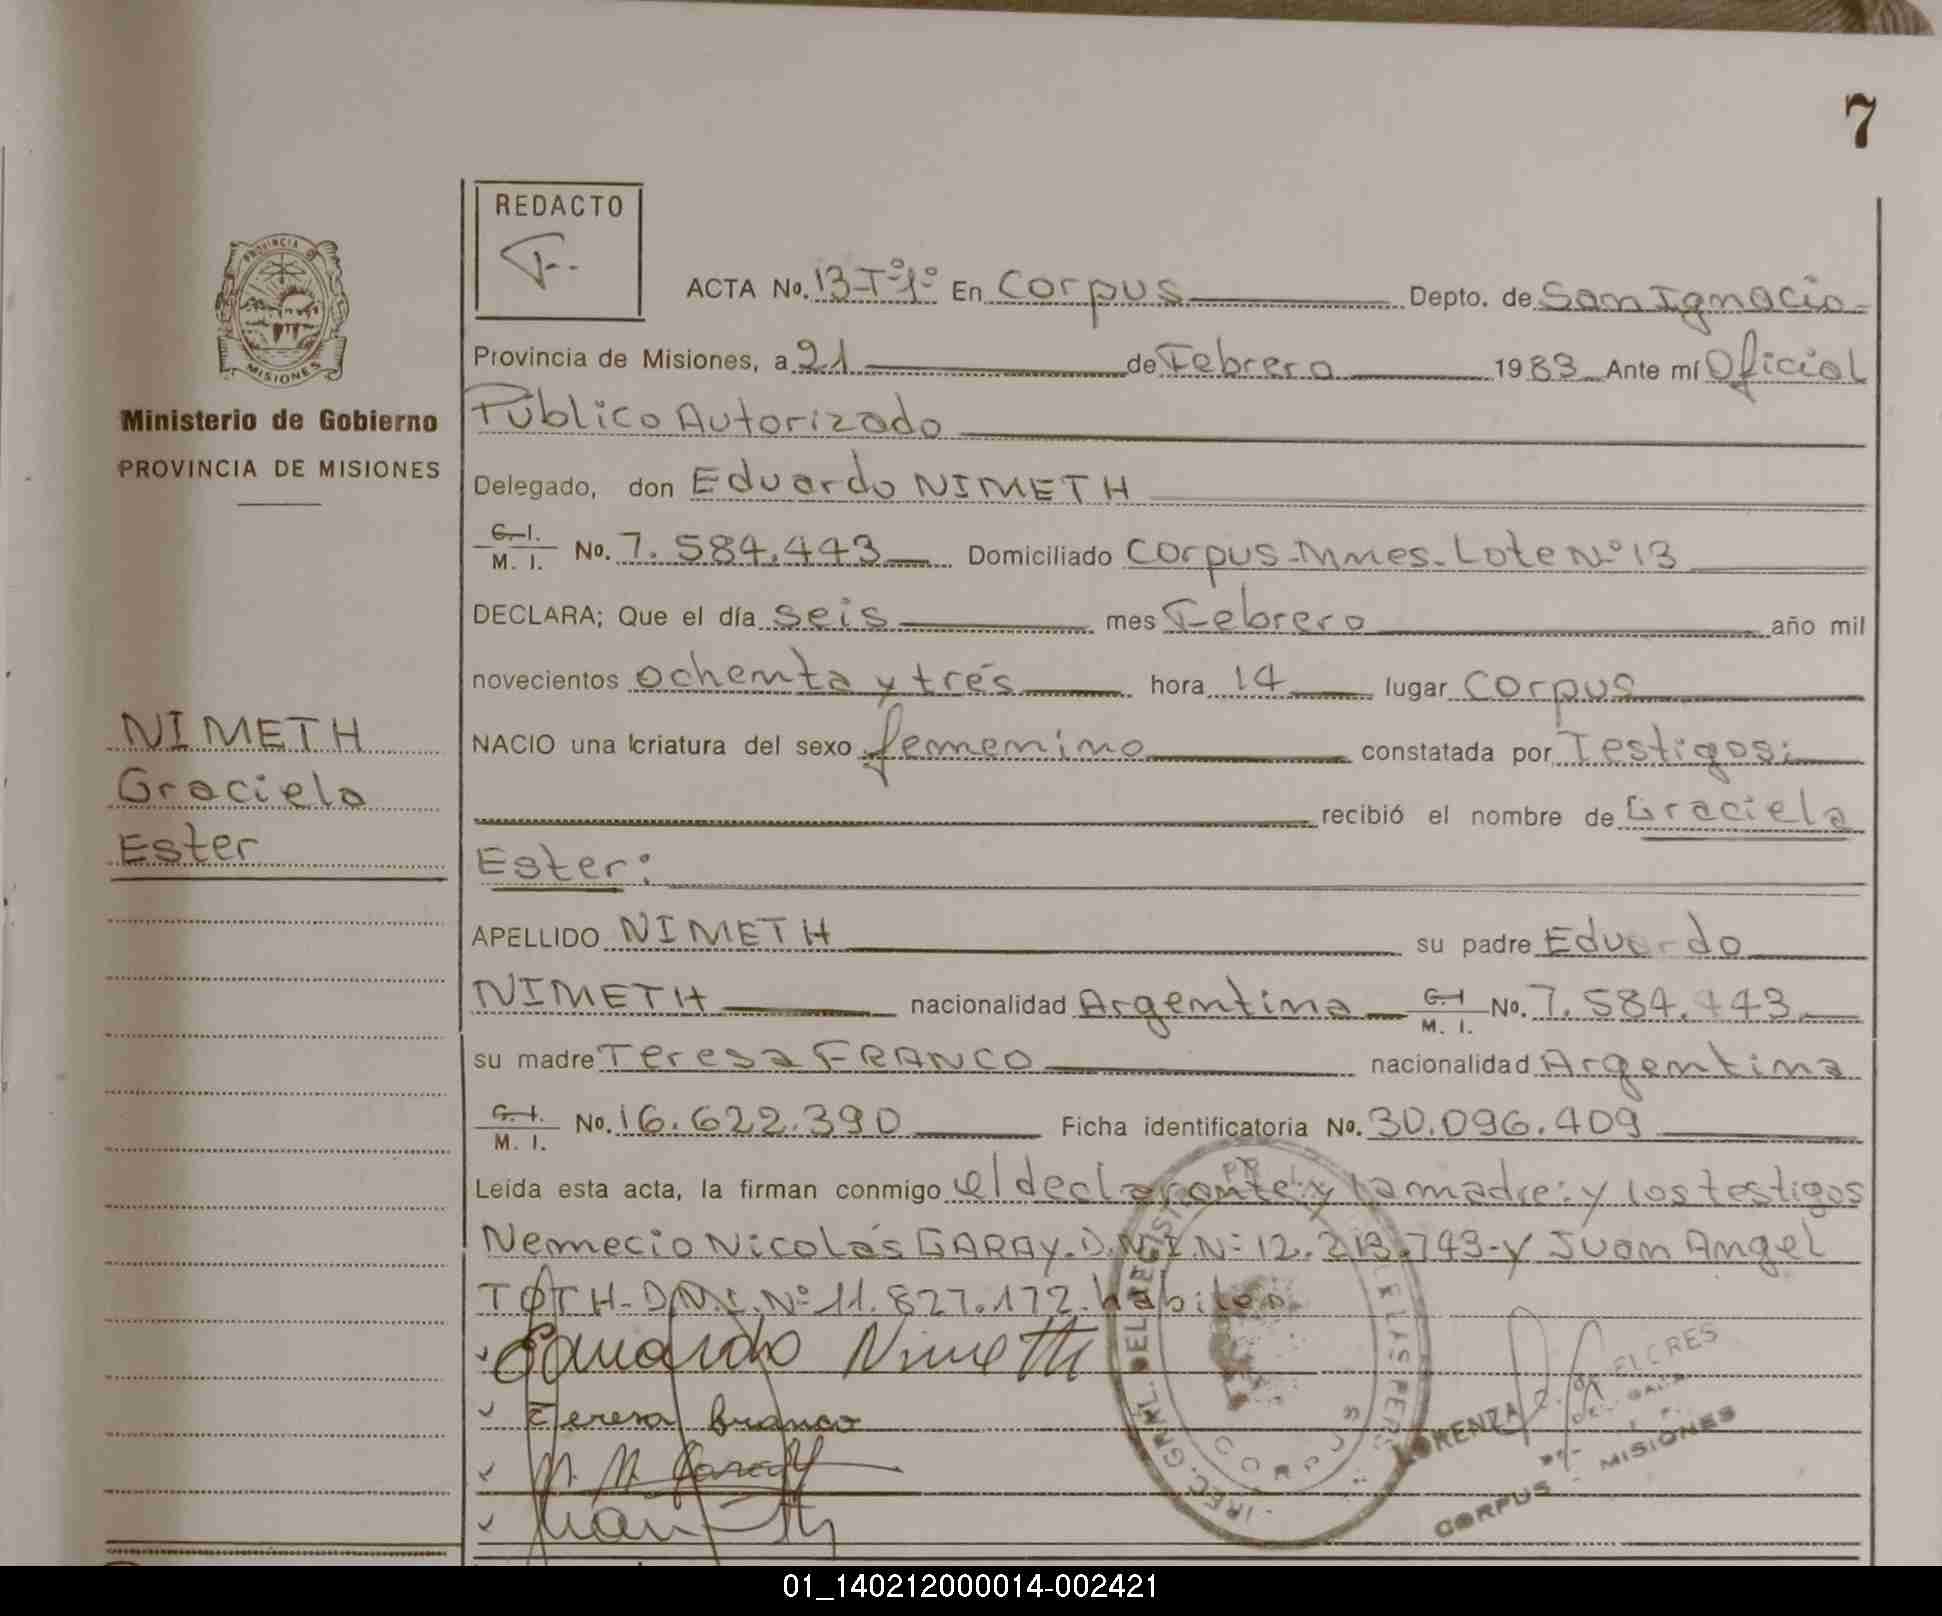 7
REDACTO
F.
ACTA No. 13-Tº1º En Corpus Depto. de San Ignacio
Provincia de Misiones, a 21 de Febrero 1983 Ante mí Oficial
Público Autorizado
PROVINCIA
MISIONES
Ministerio de Gobierno
PROVINCIA DE MISIONES
Delegado, don Eduardo NIMETH
C. I. M. I. No. 7.584.443 Domiciliado Corpus-Mnes-Lote Nº 13
DECLARA; Que el día seis mes Febrero año mil
novecientos ochenta y trés hora 14 lugar Corpus
NIMETH
Graciela
Ester
NACIO una criatura del sexo femenino constatada por Testigos:
recibió el nombre de Graciela
Ester:
APELLIDO NIMETH su padre Eduardo
NIMETH nacionalidad Argentina C. I. M. I. No. 7.584.443
su madre Teresa FRANCO nacionalidad Argentina
C. I. M. I. No. 16.622.390 Ficha identificatoria No. 30.096.409
Leída esta acta, la firman conmigo el declarante: y la madre: y los testigos
Nemecio Nicolás GARAY. D.N.I. Nº 12.213.743-y Juan Angel
TOTH-D.N.I. Nº 11.827.172. habiles.
Eduardo Nimeth
Teresa Franco
N. N. Garay
Juan Toth
CORPUS
LORENZA FLORES
CORPUS - MISIONES
01_140212000014-002421